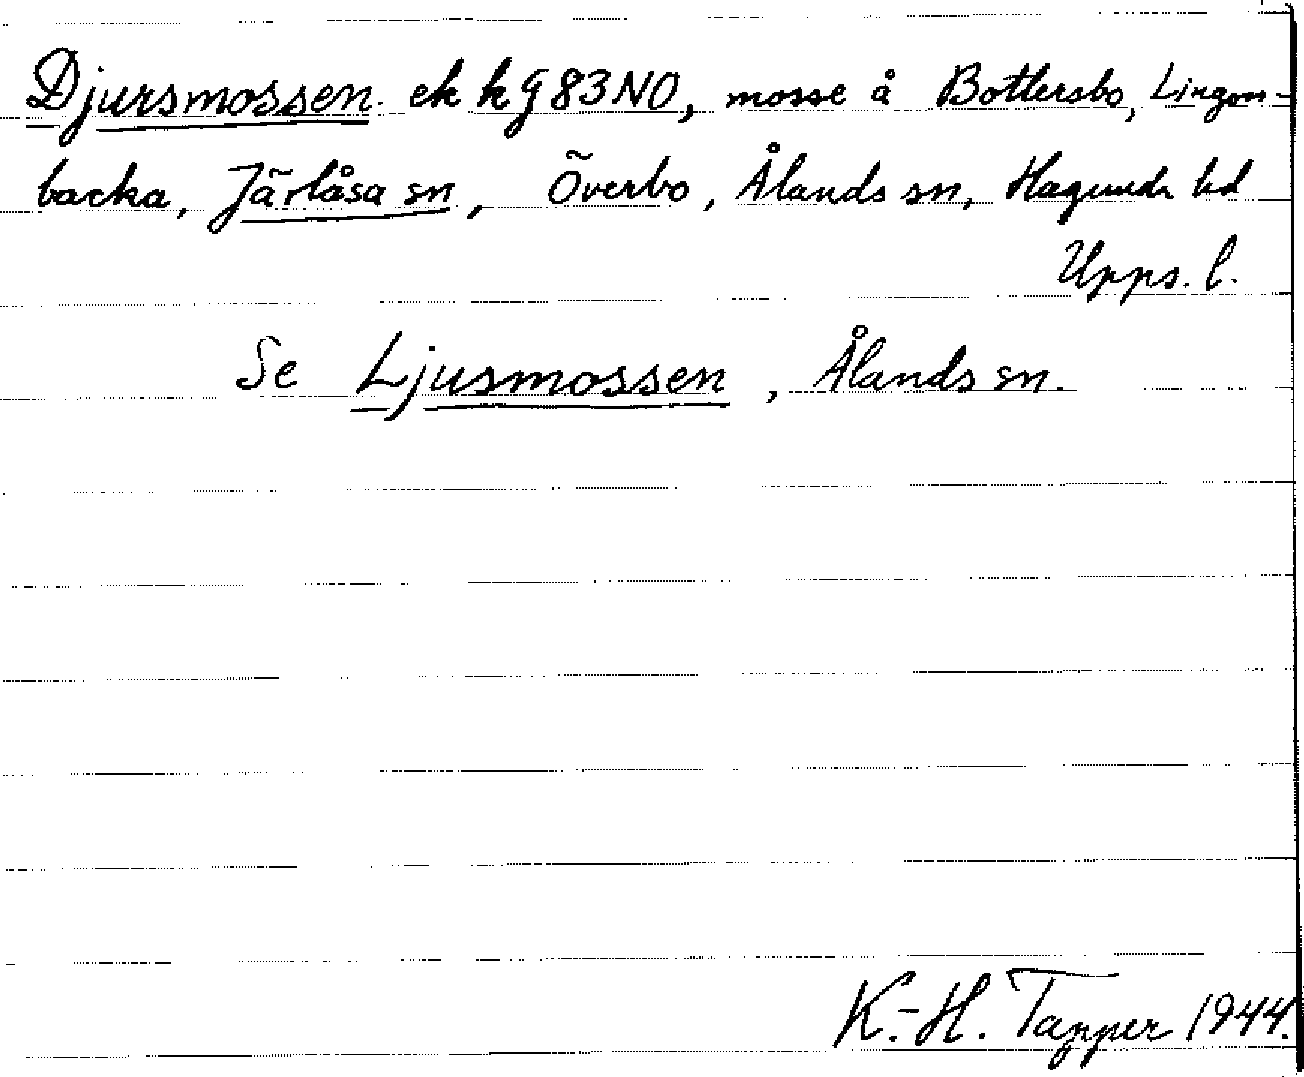 Djursmossen ek kg 83 NO, mosse å Bottersbo, Lingon-
backa, Järlåsa sn, Överbo, Ålands sn, Hagunda hd
Upps. l.
Se Ljusmossen, Ålands sn.
K.-H. Tapper 1944.